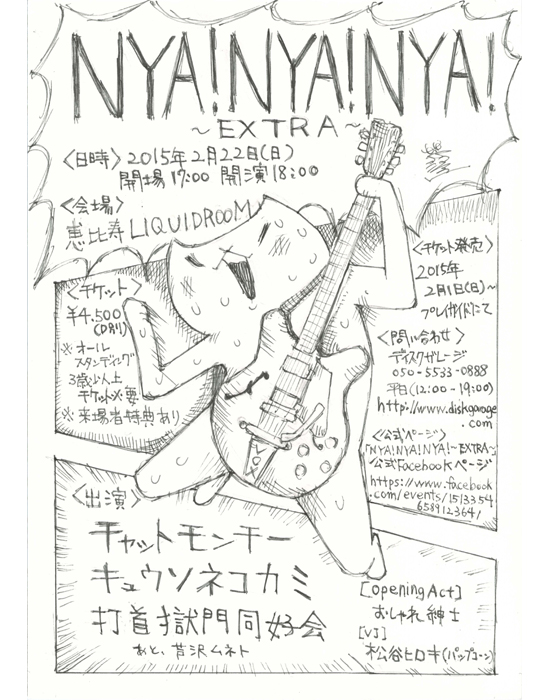 NYA!NYA!NYA!
~EXTRA~
<日時> 2015年2月22日(日)
開場17:00 開演18:00
<会場>
恵比寿 LIQUIDROOM
<チケット>
¥4,500
(D別)
※オール
スタンディング
3歳以上
チケット必要
※来場者特典あり
<チケット発売>
2015年
2月1日(日)~
プレイガイドにて
<問い合わせ>
ディスクガレージ
050-5533-0888
平日(12:00-19:00)
http://www.diskgarage
.com
<公式ページ>
「NYA!NYA!NYA!~EXTRA~」
公式Facebookページ
https://www.facebook
.com/events/1513354
658912364/
<出演>
チャットモンチー
キュウソネコカミ
打首獄門同好会
あと、芦沢ムネト
[Opening Act]
おしゃれ紳士
[VJ]
松谷ヒロキ(パップコーン)